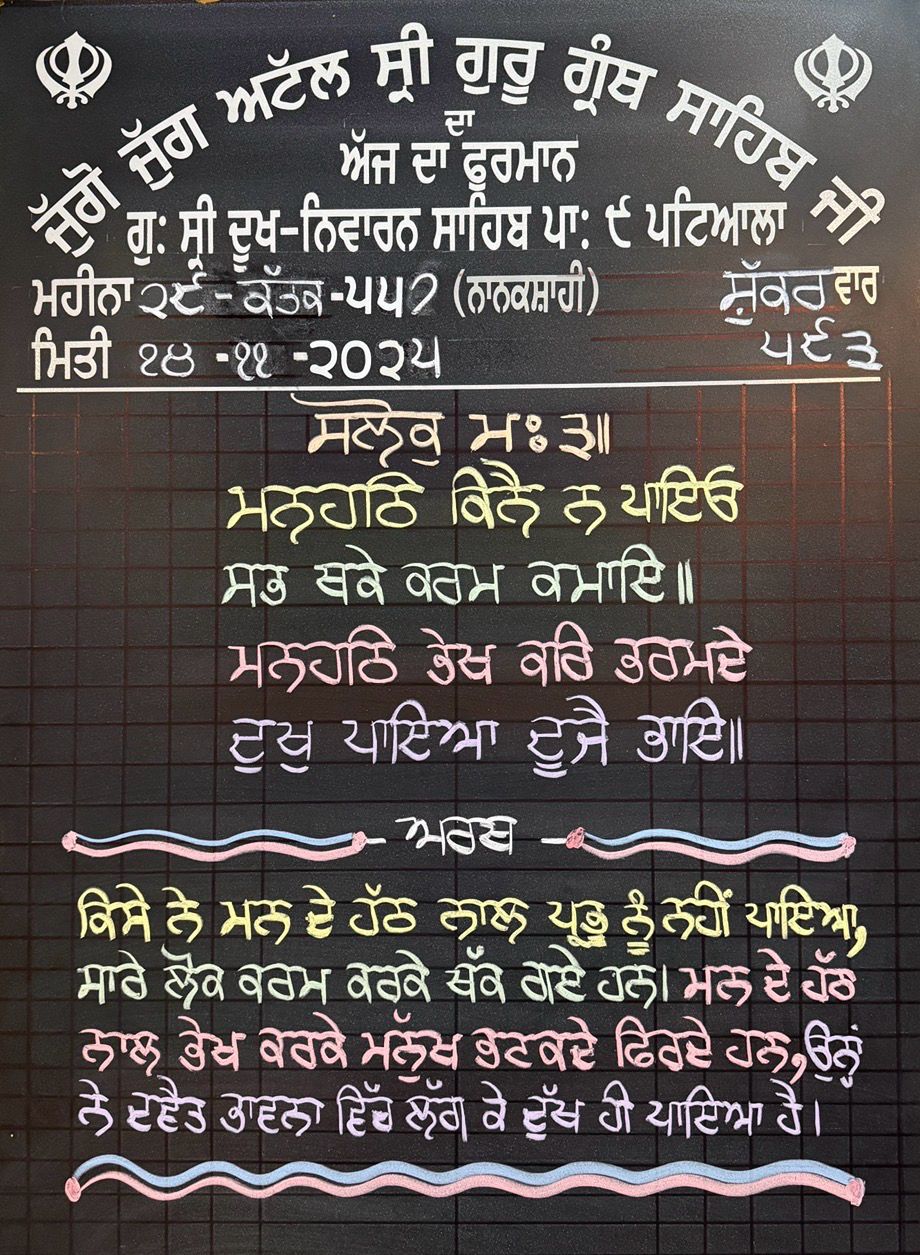 ਜੁੱਗੋ ਜੁੱਗ ਅਟੱਲ ਸ੍ਰੀ ਗੁਰੂ ਗ੍ਰੰਥ ਸਾਹਿਬ ਜੀ
ਦਾ
ਅੱਜ ਦਾ ਫੁਰਮਾਨ
ਗੁ: ਸ੍ਰੀ ਦੂਖ-ਨਿਵਾਰਨ ਸਾਹਿਬ ਪਾ: ੯ ਪਟਿਆਲਾ
ਮਹੀਨਾ ੨੯ - ਕੱਤਕ -੫੫੭ (ਨਾਨਕਸ਼ਾਹੀ) ਸ਼ੁੱਕਰਵਾਰ
ਮਿਤੀ ੧੪ -੧੧ -੨੦੨੫ ੫੯੩
ਸਲੋਕੁ ਮਃ ੩॥
ਮਨਹਠਿ ਕਿਨੈ ਨ ਪਾਇਓ
ਸਭ ਥਕੇ ਕਰਮ ਕਮਾਇ॥
ਮਨਹਠਿ ਭੇਖ ਕਰਿ ਭਰਮਦੇ
ਦੁਖੁ ਪਾਇਆ ਦੂਜੈ ਭਾਇ॥
- ਅਰਥ -
ਕਿਸੇ ਨੇ ਮਨ ਦੇ ਹੱਠ ਨਾਲ ਪ੍ਰਭੂ ਨੂੰ ਨਹੀਂ ਪਾਇਆ,
ਸਾਰੇ ਲੋਕ ਕਰਮ ਕਰਕੇ ਥੱਕ ਗਏ ਹਨ। ਮਨ ਦੇ ਹੱਠ
ਨਾਲ ਭੇਖ ਕਰਕੇ ਮਨੁੱਖ ਭਟਕਦੇ ਫਿਰਦੇ ਹਨ, ਉਨ੍ਹਾਂ
ਨੇ ਦਵੈਤ ਭਾਵਨਾ ਵਿੱਚ ਲੱਗ ਕੇ ਦੁੱਖ ਹੀ ਪਾਇਆ ਹੈ।